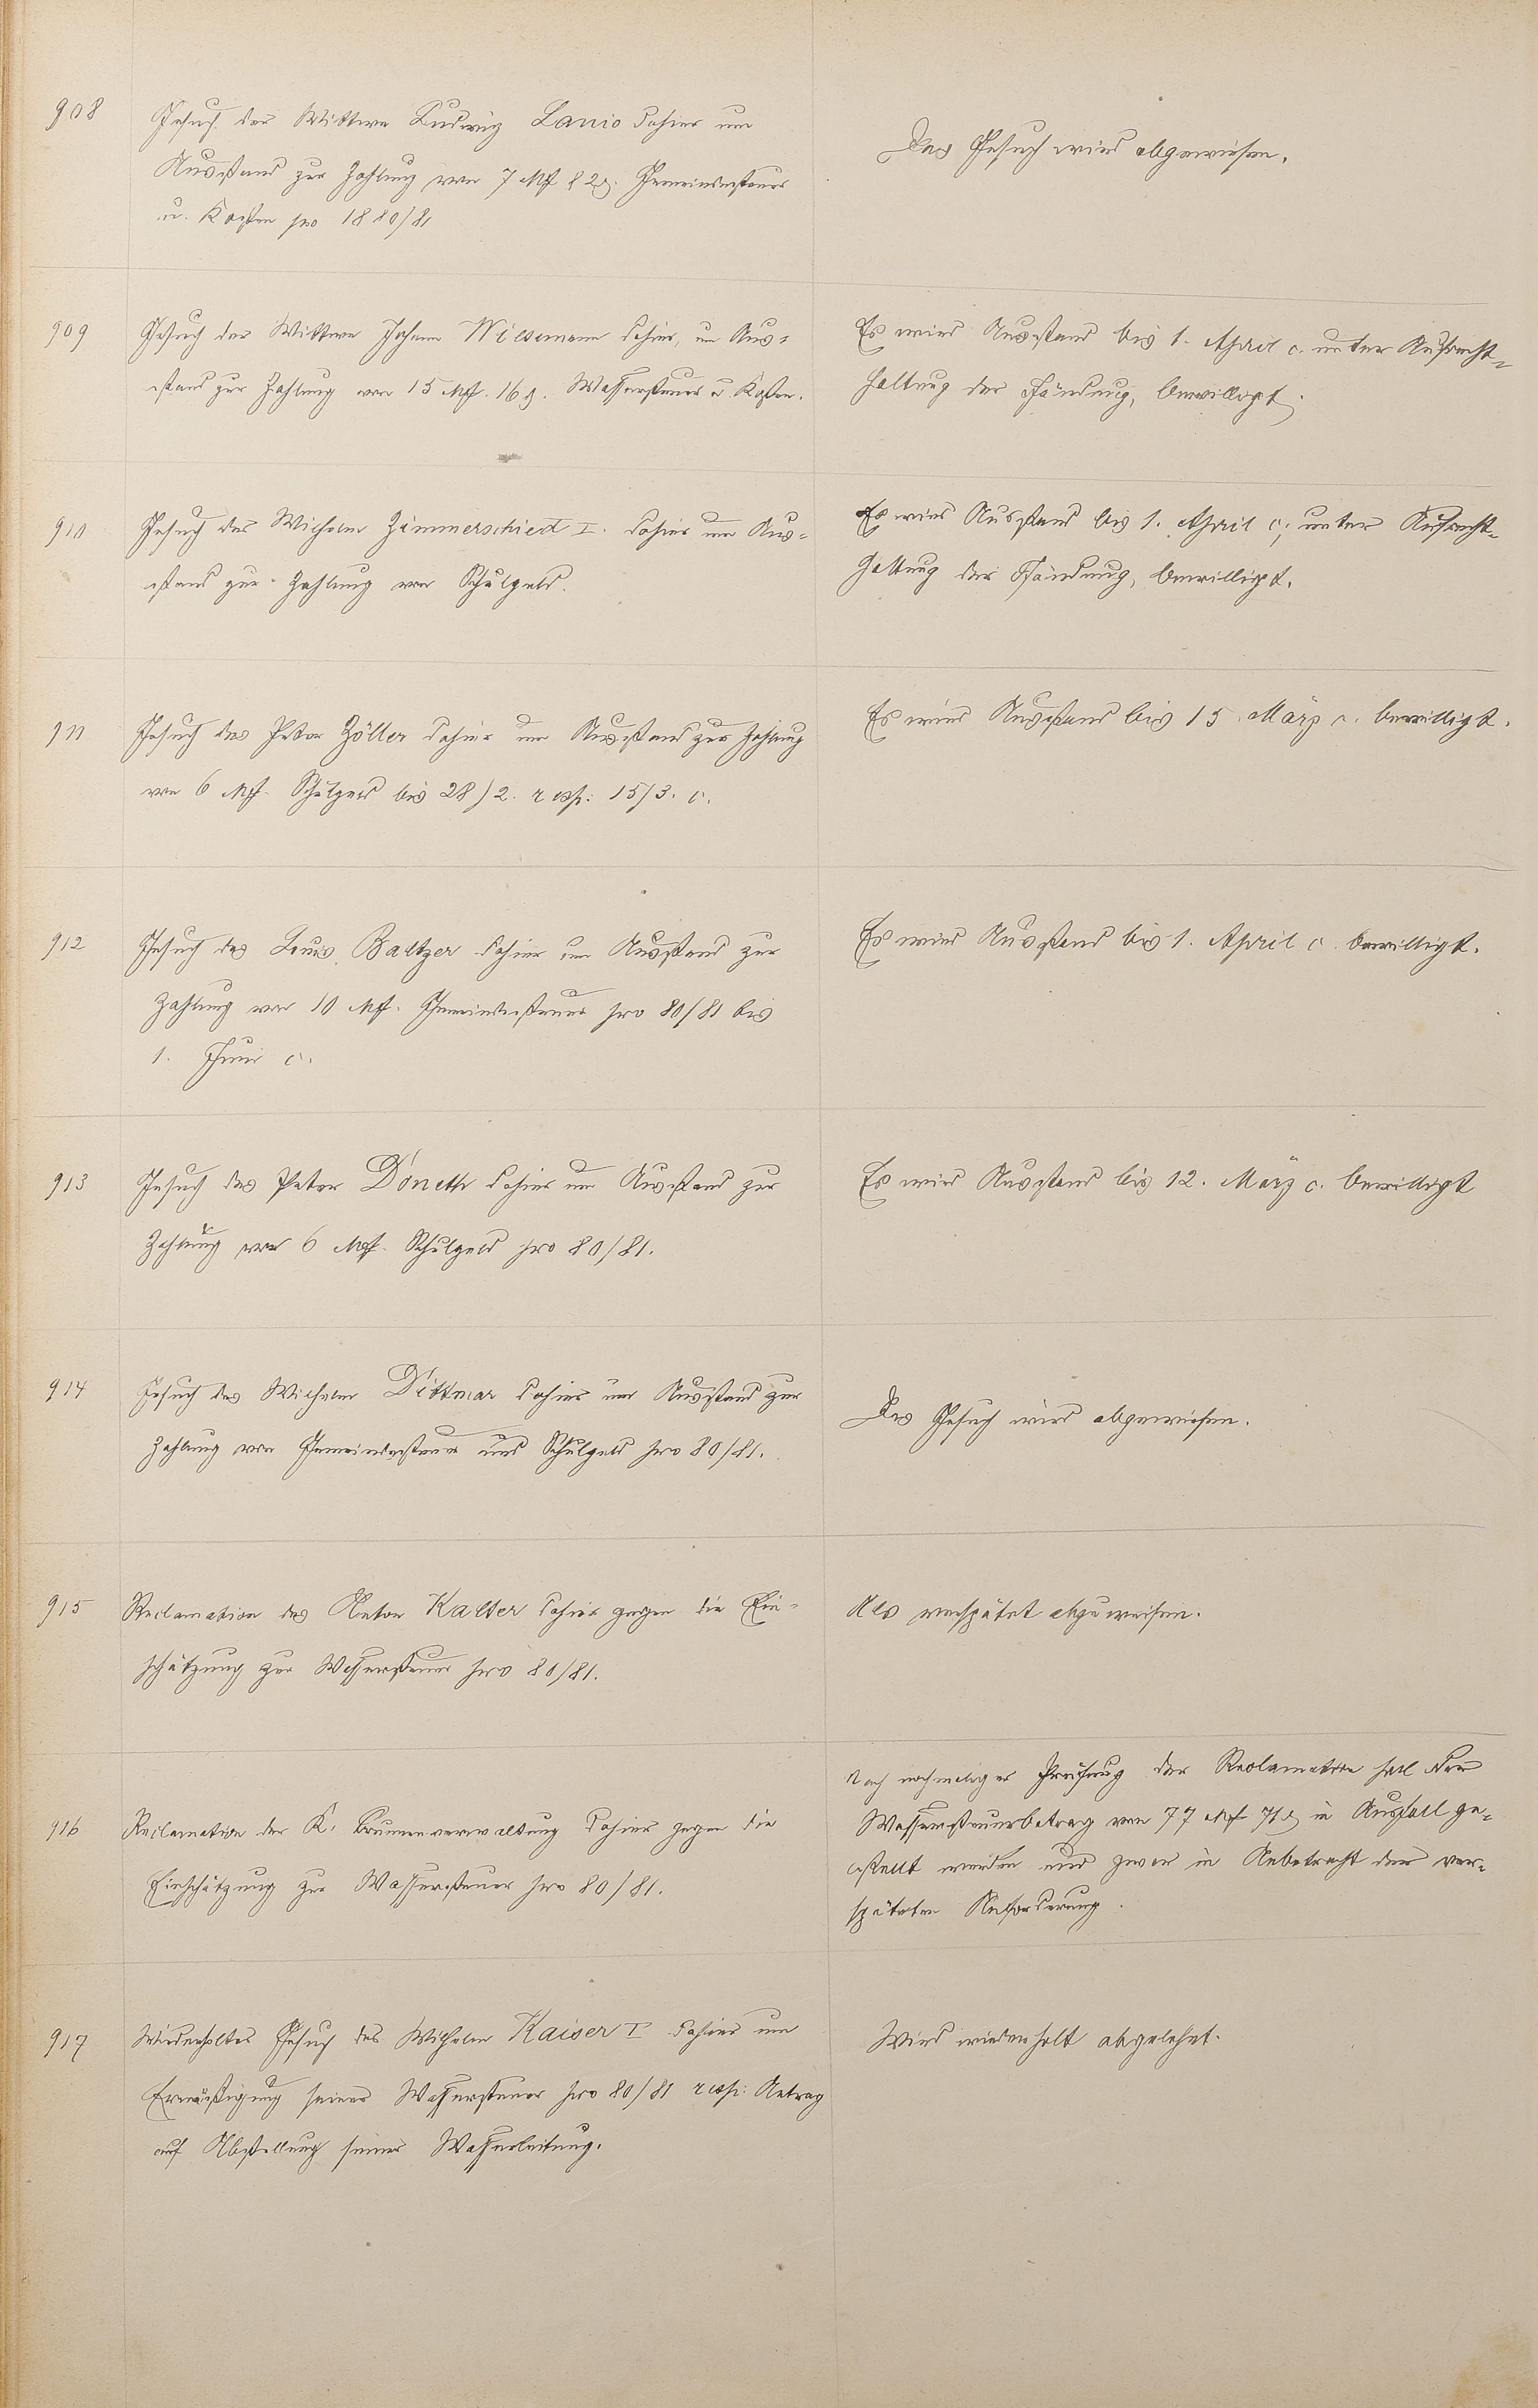 908
Gesuch der Wittwe Ludwig Lanio dahier um
Ausstand zur Zahlung von 7 Mk 82 ₰. Gemeindesteuer
u. Kosten pro 1880/81
Das Gesuch wird abgewiesen.
909
Gesuch der Wittwe Johann Wilsemann dahier, um Aus-
stand zur Zahlung von 15 Mk. 16 ₰. Wassersteuer u. Kosten.
Es wird Ausstand bis 1. April c. unter Aufrecht-
haltung der Pfändung, bewilligt.
910
Gesuch des Wilhelm Zimmerschied I. dahier um Aus-
stand zur Zahlung von Schulgeld.
Es wird Ausstand bis 1. April c, unter Aufrecht-
haltung der Pfändung, bewilligt.
911
Gesuch des Peter Zöller dahier um Ausstand zur Zahlung
von 6 Mk. Schulgeld bis 28/2. resp: 15/3. c.
Es wird Ausstand bis 15. März c. bewilligt.
912
Gesuch des Louis Baltzer dahier um Ausstand zur
Zahlung von 10 Mk. Gemeindesteuer pro 80/81 bis
1. Juni c.
Es wird Ausstand bis 1. April c. bewilligt.
913
Gesuch des Peter Döneth dahier um Ausstand zur
Zahlung von 6 Mk. Schulgeld pro 80/81.
Es wird Ausstand bis 12. März c. bewilligt
914
Gesuch des Wilhelm Dittmar dahier um Ausstand zur
Zahlung von Gemeindesteuer und Schulgeld pro 80/81.
Das Gesuch wird abgewiesen.
915
Reclamation des Anton Kalter dahier gegen die Ein-
schätzung zur Wassersteuer pro 80/81.
Als verspätet abzuweisen.
916
Reclamation der K. Brunnenverwaltung dahier gegen die
Einschätzung zur Wassersteuer pro 80/81.
Nach nochmaliger Prüfung der Reclamation soll der
Wassersteuerbetrag von 77 Mk 71 ₰ in Ausfall ge-
stellt werden und zwar in Anbetracht der ver-
späteten Anforderung.
917
Wiederholtes Gesuch des Wilhelm Kaiser I dahier um
Ermäßigung seiner Wassersteuer pro 80/81 resp: Antrag
auf Abstellung seiner Wasserleitung.
Wird wiederholt abgelehnt.